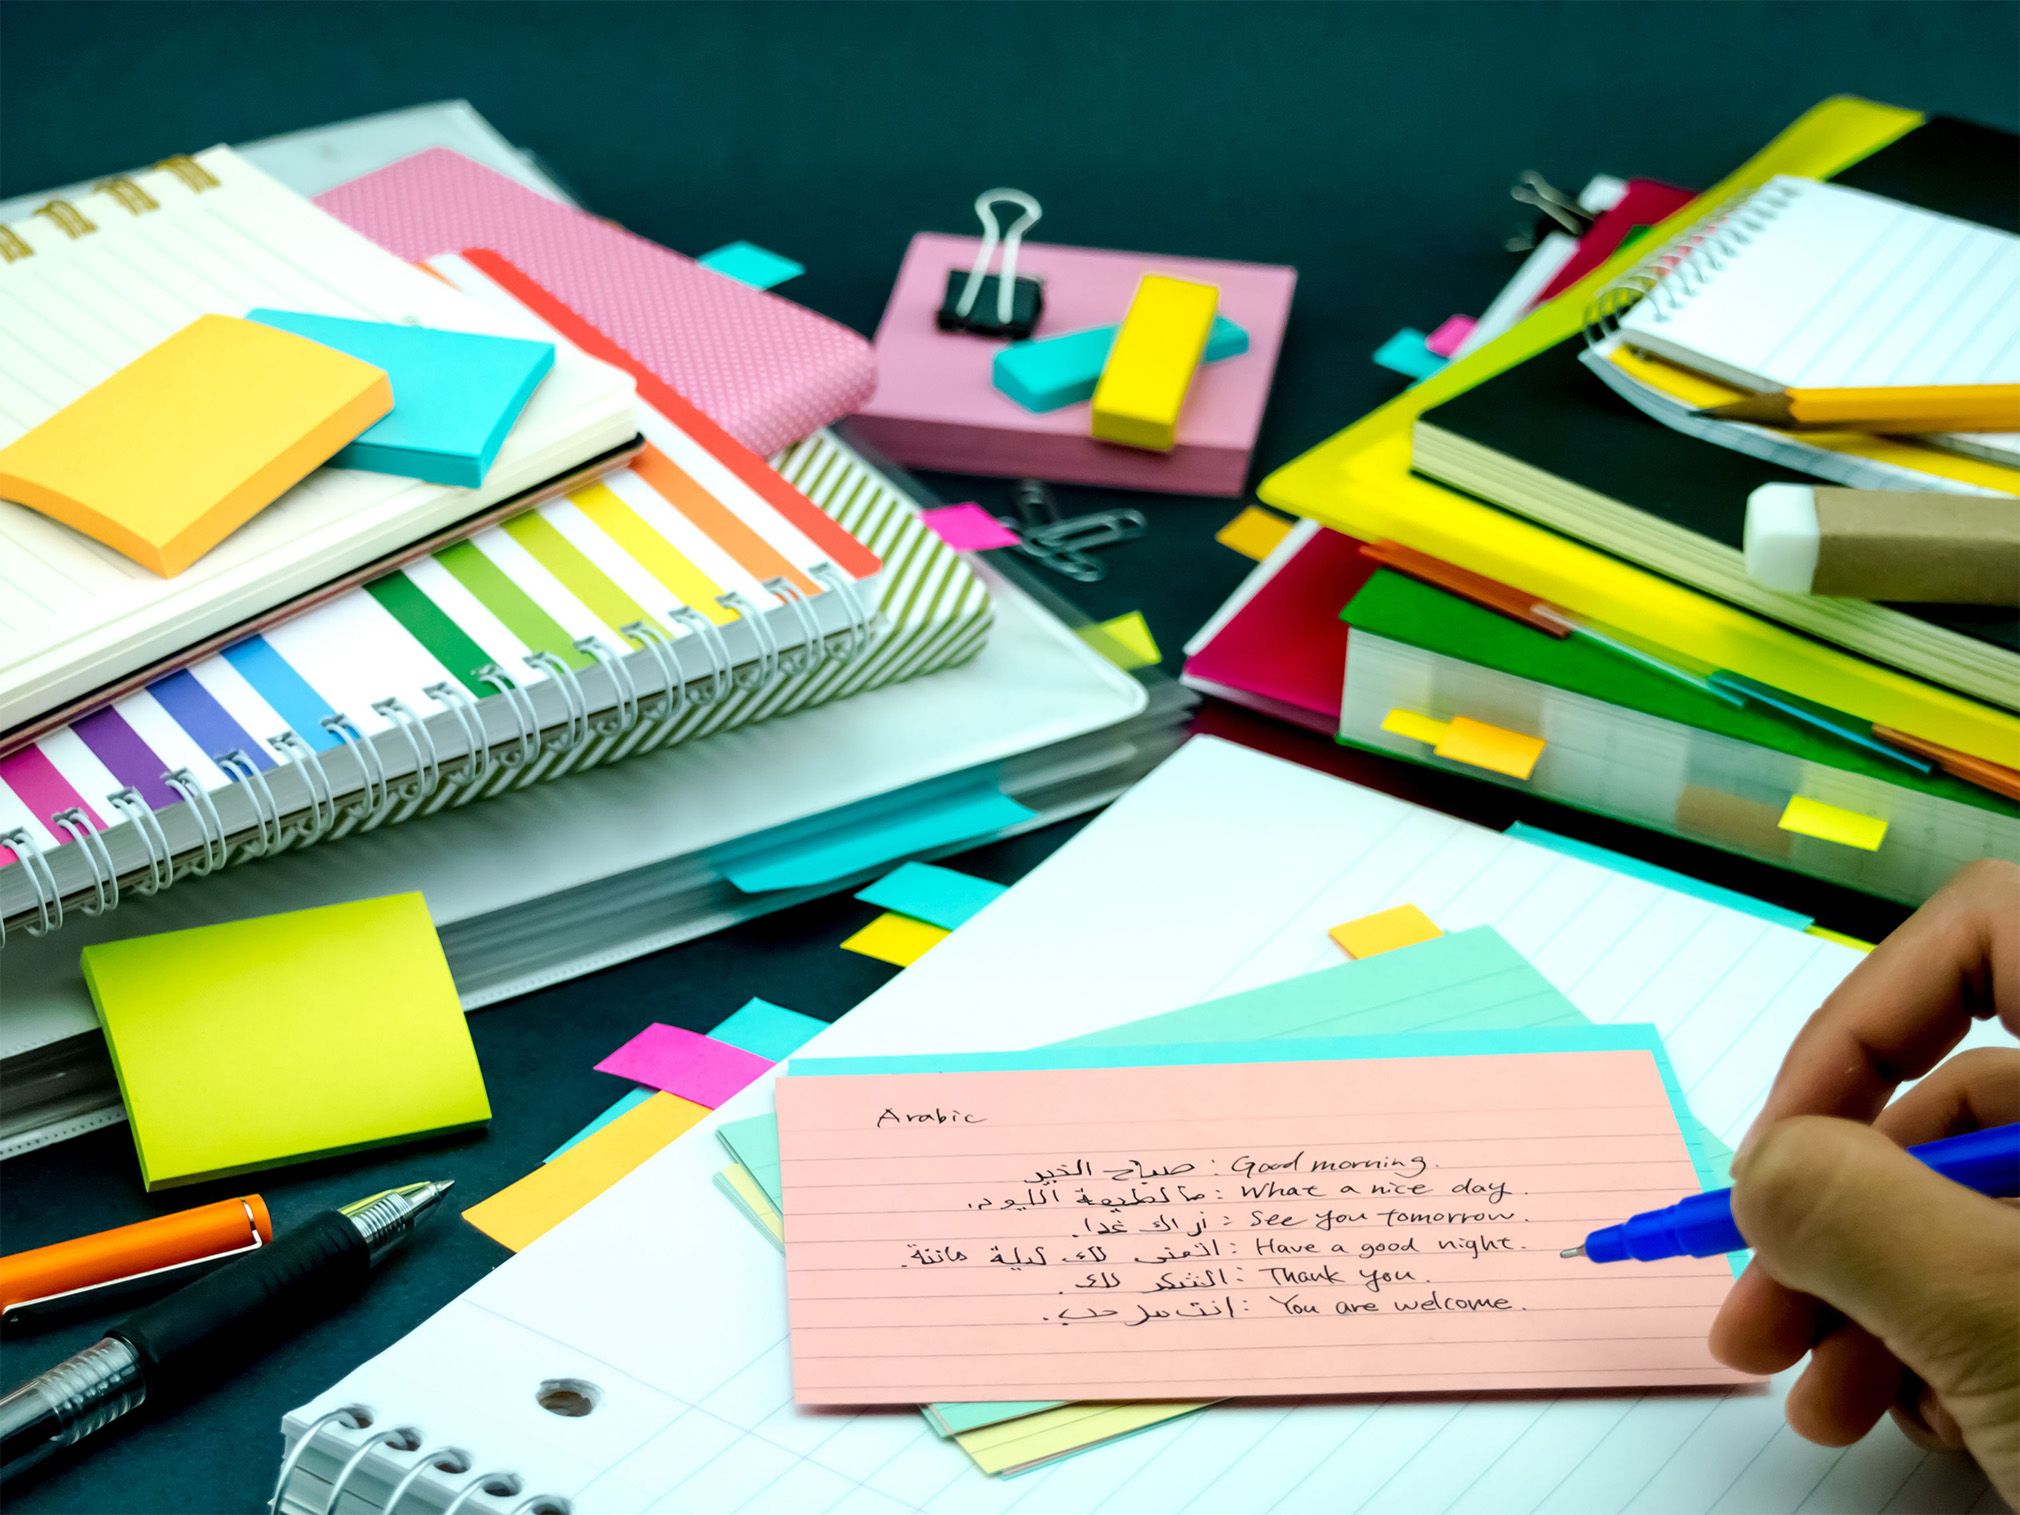 Arabic
صباح الخير : Good morning.
ما لطيفة اليوم. : What a nice day.
أراك غدا. : See you tomorrow.
اتمنى لك ليلة هانئة. : Have a good night.
الشكر لك. : Thank you.
انت مرحب. : You are welcome.